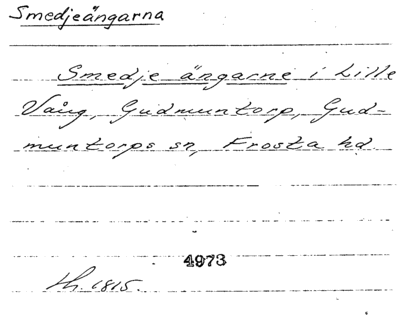 Smedjeängarna
Smedje ängarne i Lille
Vång, Gudmuntorp, Gud-
muntorps sn, Frosta hd
4973
th. 1815.